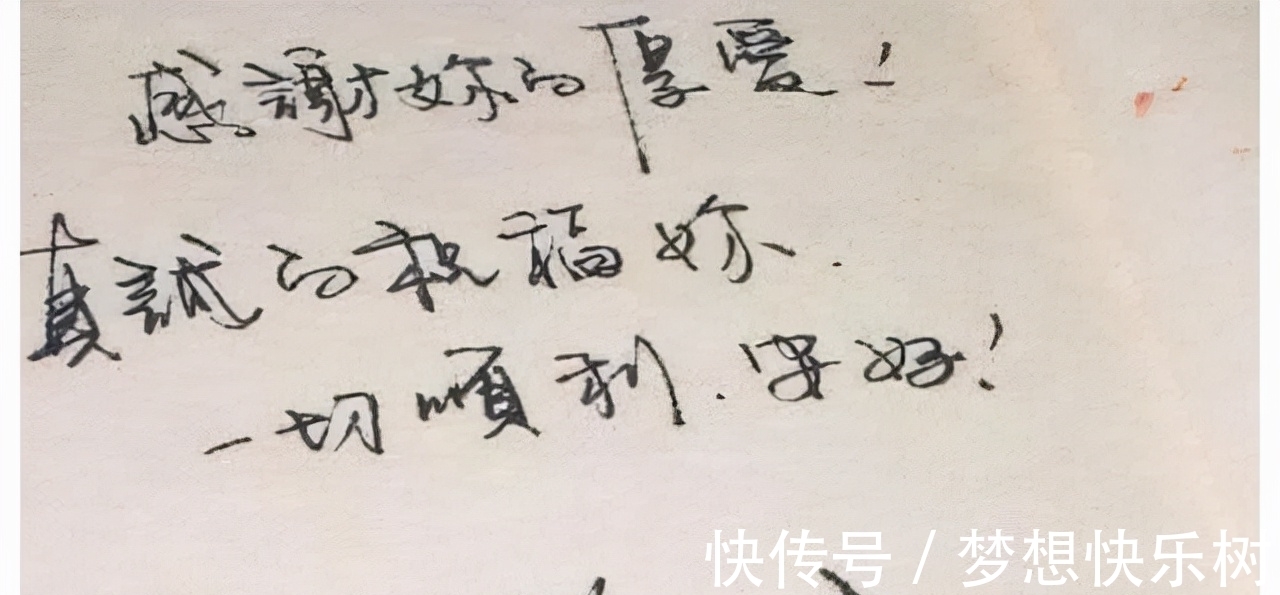 感謝妳的厚愛！
真誠的祝福妳.
一切順利.安好！
快传号/梦想快乐树